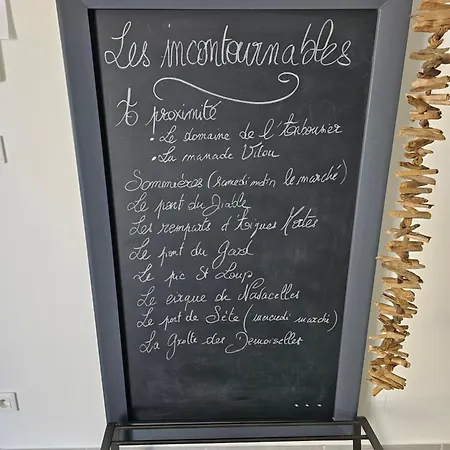 Les incontournables
à proximité
• Le domaine de l'Arbousier
• La manade Vitou
Sommières (samedi matin le marché)
Le pont du Diable
Les remparts d'Aigues Mortes
Le pont du Gard
Le pic St Loup
Le cirque de Navacelles
Le port de Sète (mercredi marché)
La Grotte des Demoiselles
...